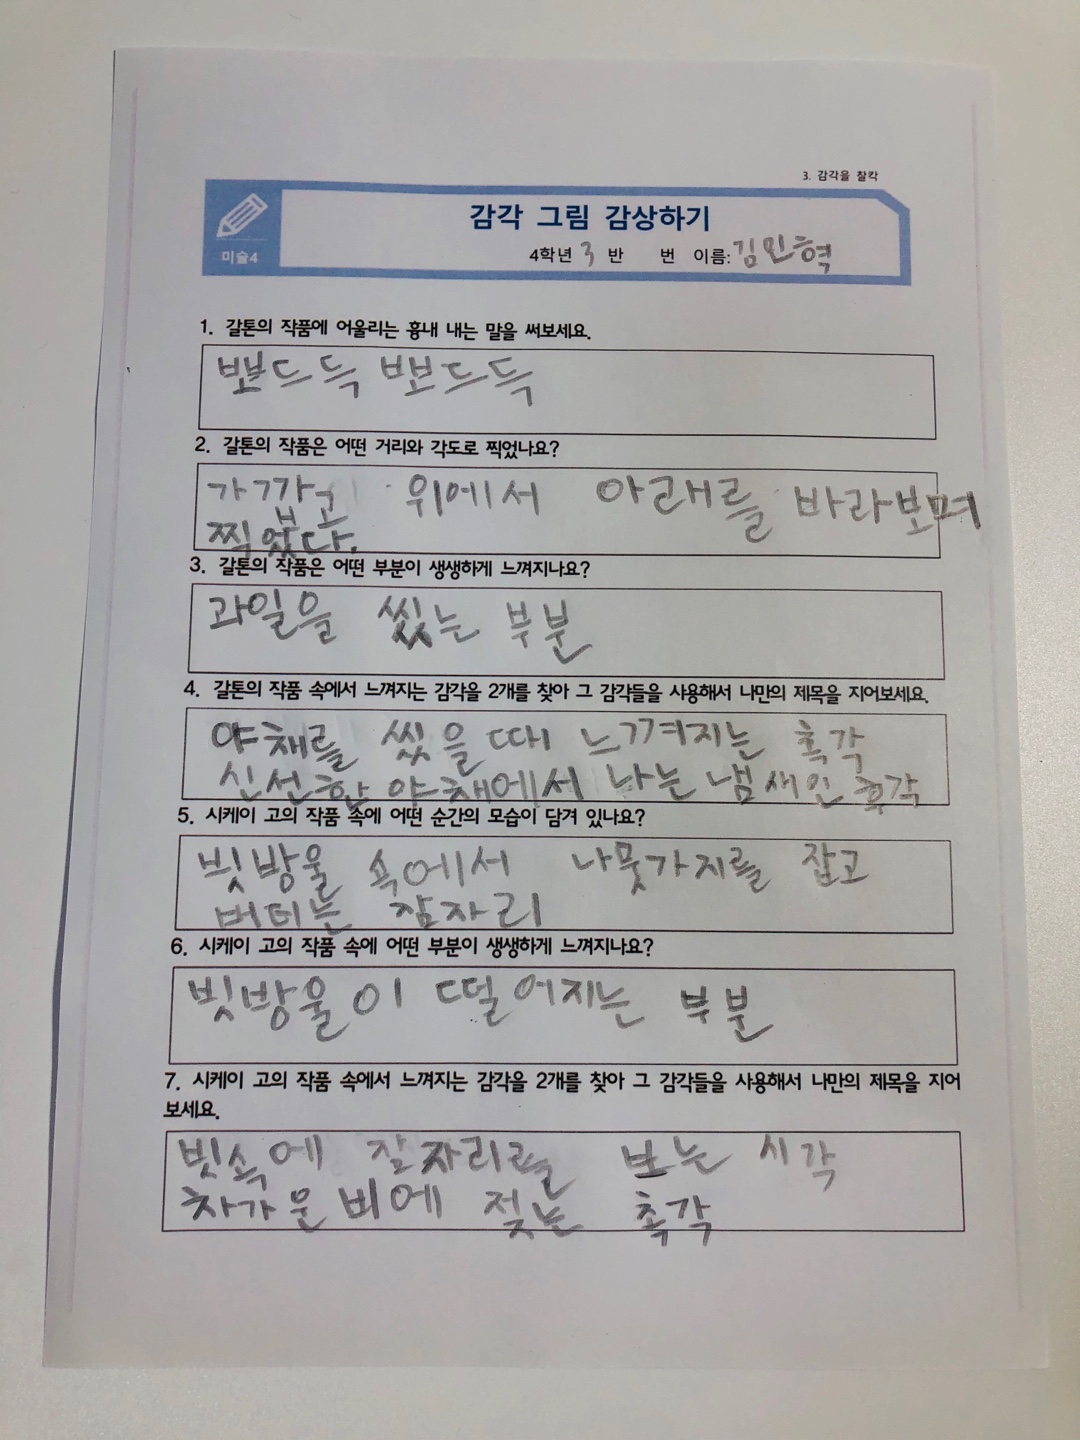 3. 감각을 찰칵
감각 그림 감상하기
미술4
4학년 3 반 번 이름: 김민혁
1. 갈톤의 작품에 어울리는 흉내 내는 말을 써보세요.
뽀드득 뽀드득
2. 갈톤의 작품은 어떤 거리와 각도로 찍었나요?
가깝고 위에서 아래를 바라보며
찍었다.
3. 갈톤의 작품은 어떤 부분이 생생하게 느껴지나요?
과일을 씼는 부분
4. 갈톤의 작품 속에서 느껴지는 감각을 2개를 찾아 그 감각들을 사용해서 나만의 제목을 지어보세요.
야채를 씼을 때 느껴지는 촉각
신선한 야채에서 나는 냄새인 후각
5. 시케이 고의 작품 속에 어떤 순간의 모습이 담겨 있나요?
빗방울 속에서 나뭇가지를 잡고
버티는 잠자리
6. 시케이 고의 작품 속에 어떤 부분이 생생하게 느껴지나요?
빗방울이 떨어지는 부분
7. 시케이 고의 작품 속에서 느껴지는 감각을 2개를 찾아 그 감각들을 사용해서 나만의 제목을 지어
보세요.
빗속에 잠자리를 보는 시각
차가운 비에 젖는 촉각